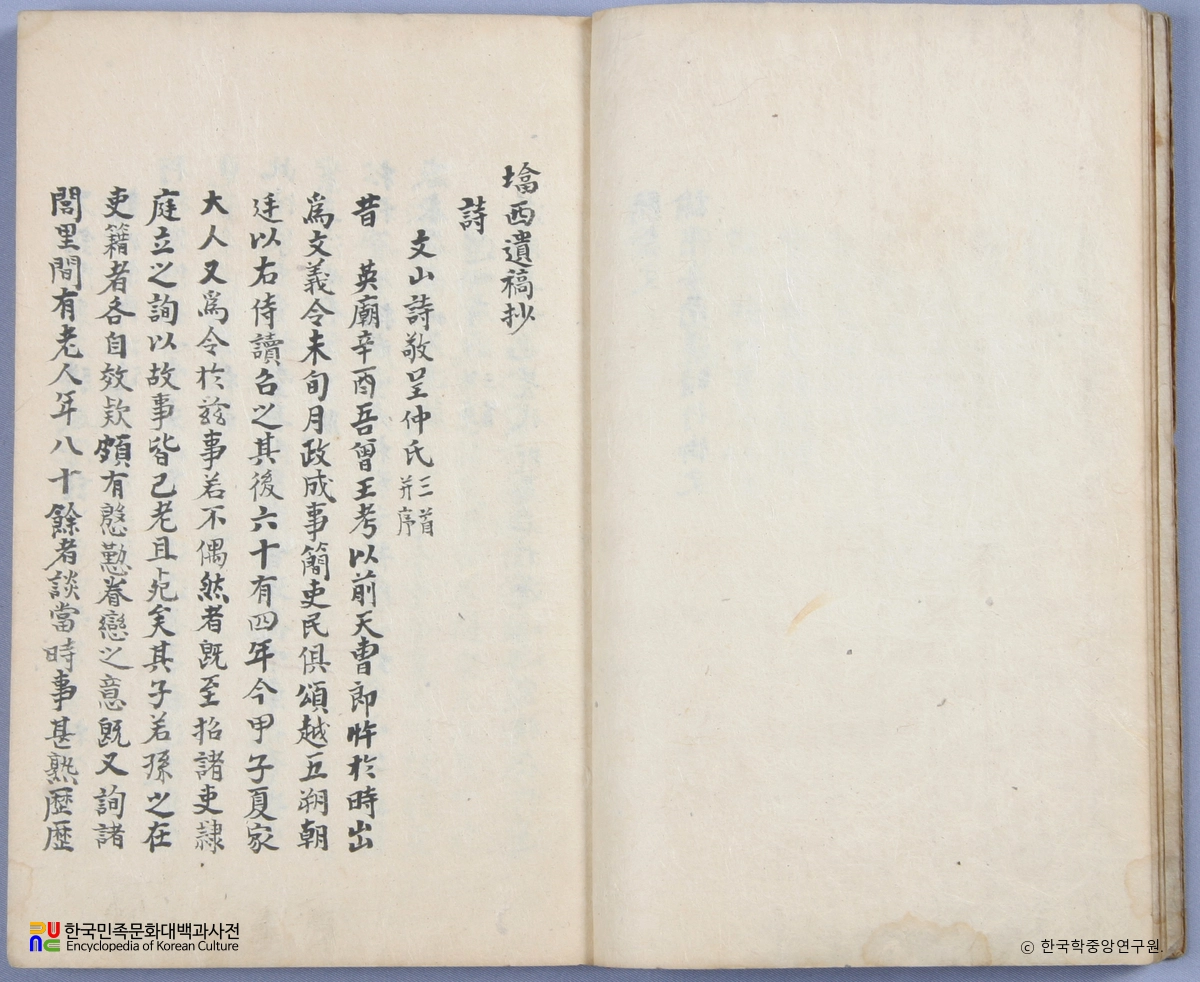 墧西遺稿抄
詩
文山詩敬呈仲氏 三首 并序
昔 英廟辛酉吾曾王考以前天曹郎忤於時出
爲文義令未旬月政成事簡吏民俱頌越五朔朝
廷以右侍讀召之其後六十有四年今甲子夏家
大人又爲令於玆事若不偶然者旣至招諸吏隷
庭立之詢以故事皆已老且死矣其子若孫之在
吏籍者各自效欵頗有慇懃眷戀之意旣又詢諸
閭里間有老人年八十餘者談當時事甚熟歷歷
한국민족문화대백과사전
Encyclopedia of Korean Culture
ⓒ 한국학중앙연구원.